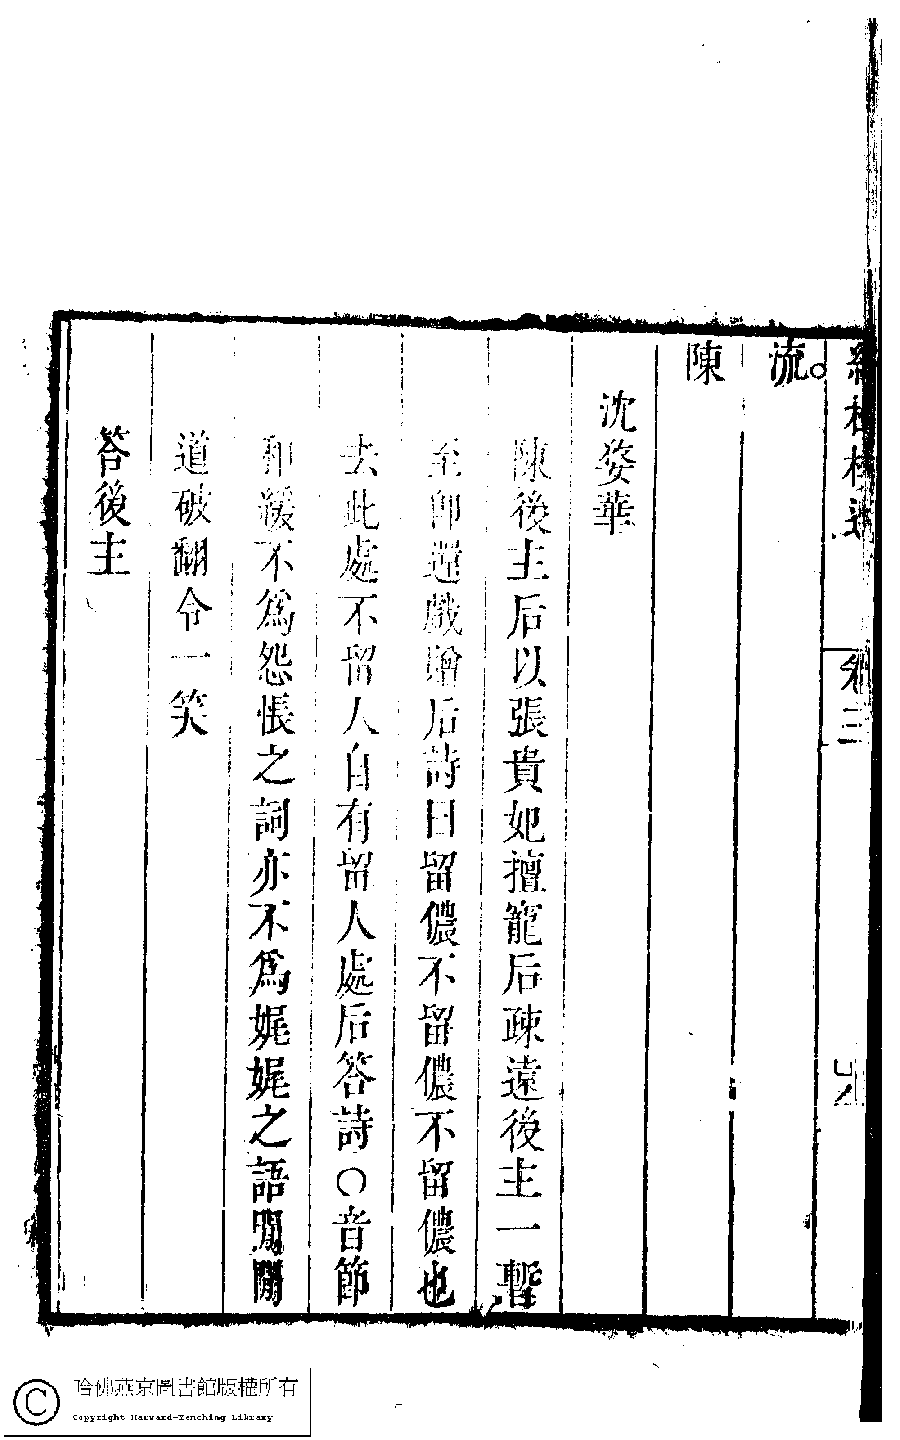 卷三
流。
陳
沈婺華
陳後主后以張貴妃擅寵后疎遠後主一暫
至即還戲贈后詩曰留儂不留儂不留儂也
去此處不留人自有留人處后答詩○音節
和緩不為怨悵之詞亦不為娓娓之語閒閒
道破翻令一笑
答後主
© 哈佛燕京圖書館版權所有
Copyright Harvard-Yenching Library